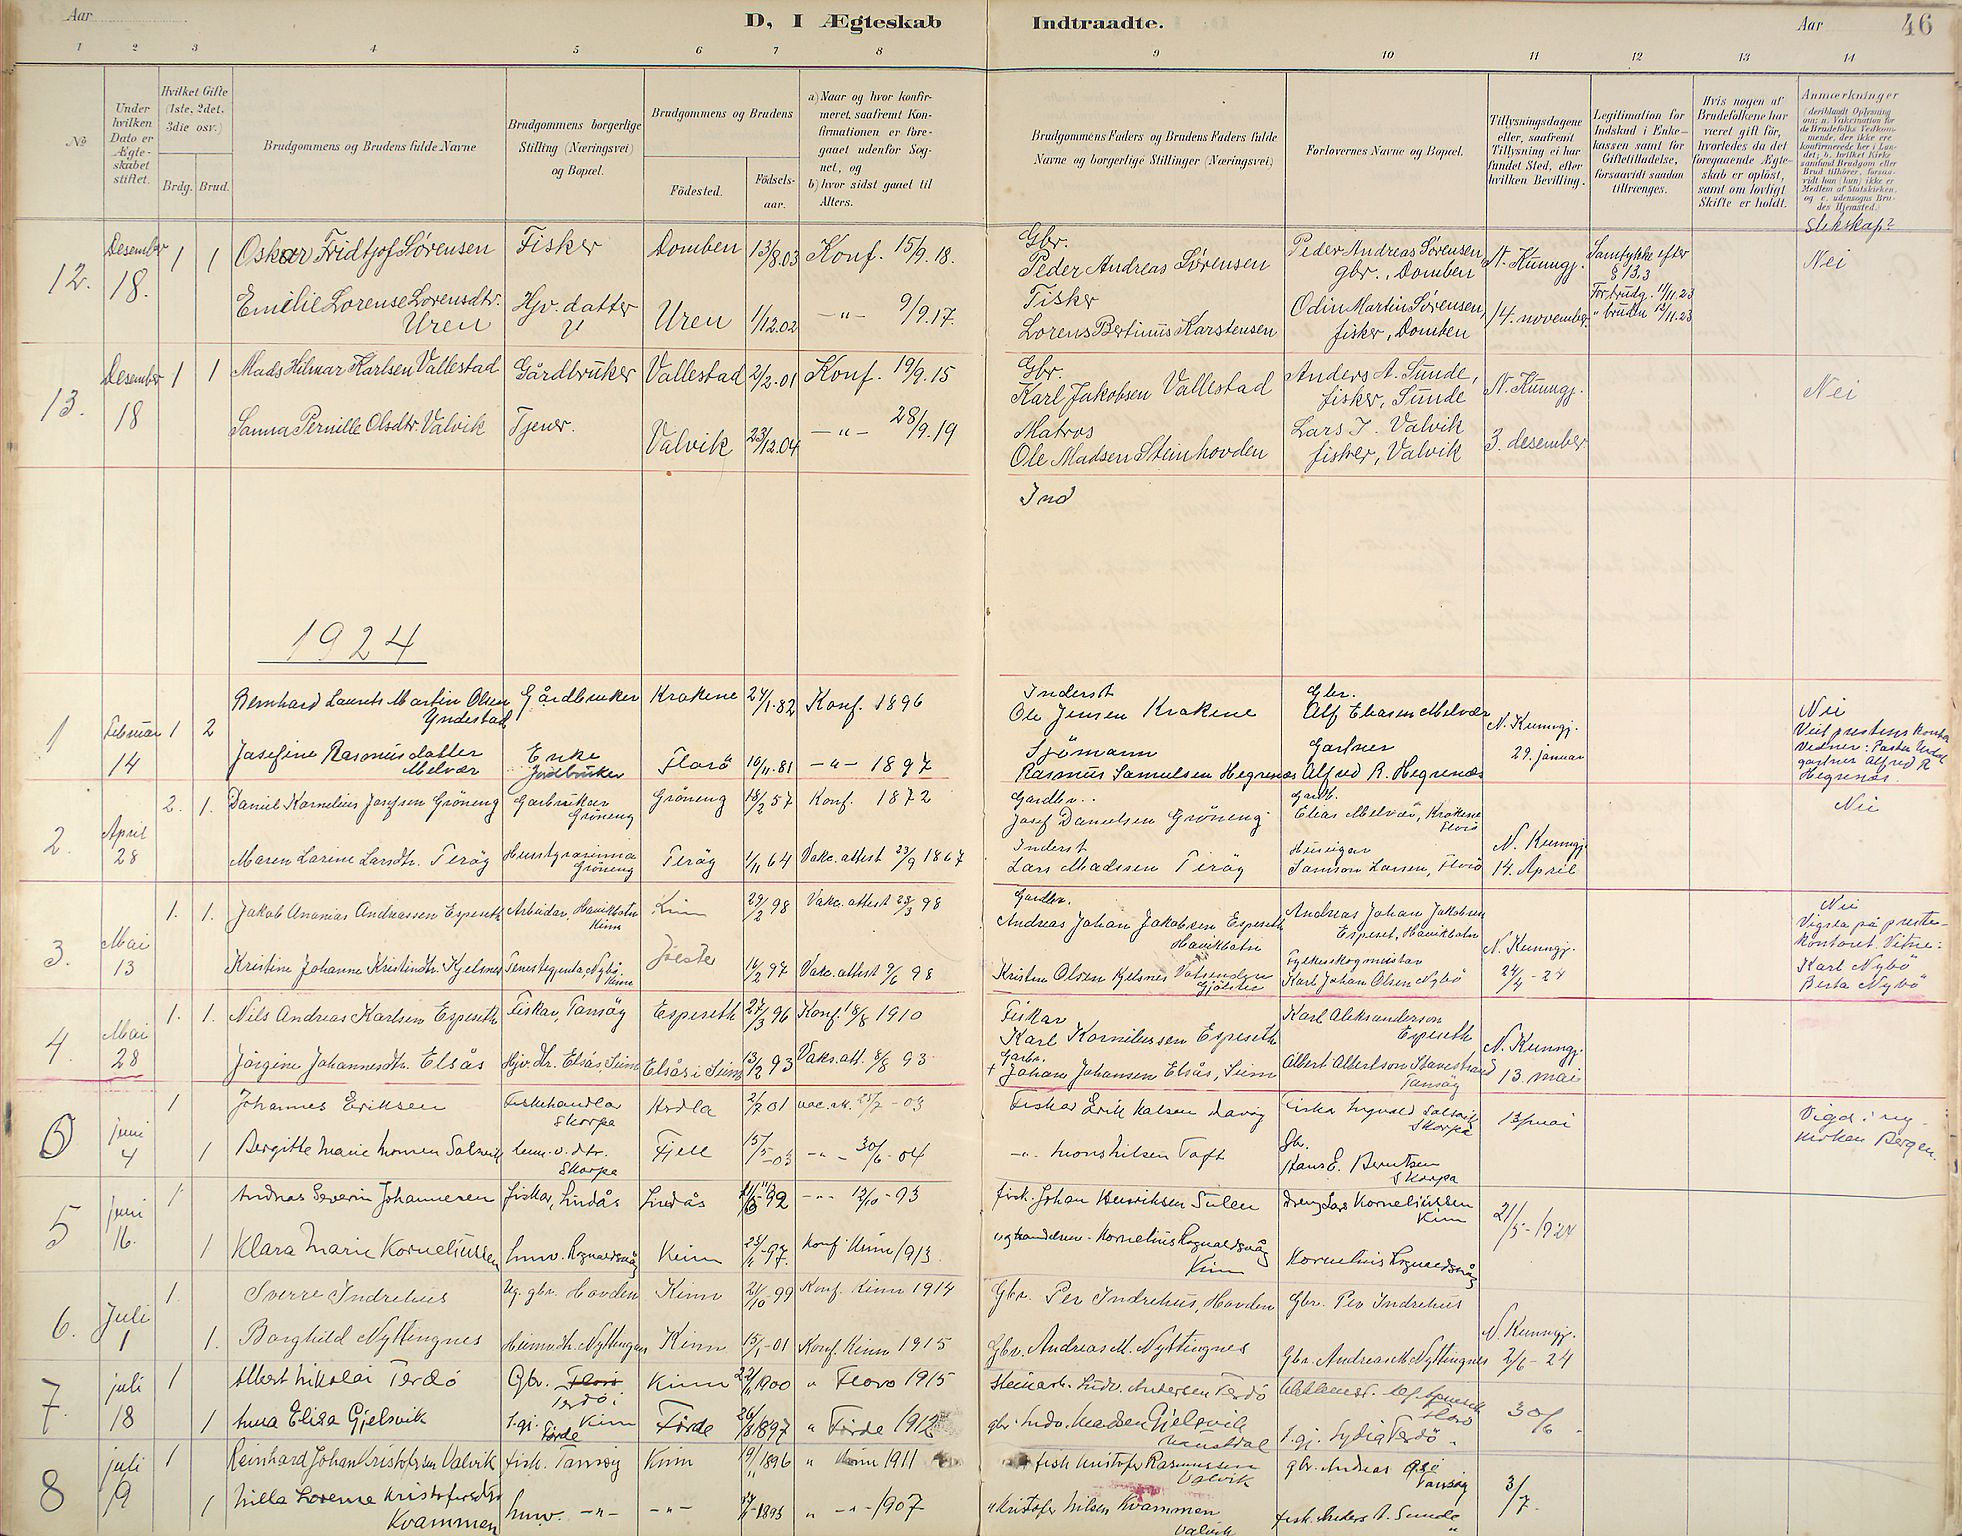 Aar
D, I Ægteskab Indtraadte.
Aar
46
1 2 3 4 5 6 7 8 9 10 11 12 13 14
No
Under hvilken Dato er Ægteskabet stiftet.
Hvilket Gifte (1ste, 2det, 3die osv.)
Brdg. Brud.
Brudgommens og Brudens fulde Navne
Brudgommens borgerlige Stilling (Næringsvei) og Bopæl.
Brudgommens og Brudens
Fødested.
Fødselsaar.
a) Naar og hvor konfirmeret, saafremt Konfirmationen er foregaaet udenfor Sognet, og
b) hvor sidst gaaet til Alters.
Brudgommens Faders og Brudens Faders fulde Navne og borgerlige Stillinger (Næringsvei)
Forlovernes Navne og Bopæl.
Tillysningsdagene eller, saafremt Tillysning ei har fundet Sted, efter hvilken Bevilling.
Legitimation for Indskud i Enkekassen samt for Giftetilladelse, forsaavidt saadan tiltrænges.
Hvis nogen af Brudefolkene har været gift før, hvorledes da det foregaaende Ægteskab er opløst, samt om lovligt Skifte er holdt.
Anmærkninger
Slekskap?
12. Desember 18. 1 1
Oskar Fridtjof Sørensen Fisker Domben 13/8.03 Konf. 15/9.18. Gbr. Peder Andreas Sørensen
Peder Andreas Sørensen, gbr., Domben
N. Kunngj.
Samtykke efter § 13,3
Nei
Emilie Lorense Lorensdtr. Uren Hjv. datter Uren 1/12.02 -"- 9/9.17. Fisker Lorens Bertinus Karstensen
Odin Martin Sørensen, fisker, Domben
14. november
For brudg. 11/11.23
" bruden 12/11.23
13. Desember 18 1 1
Mads Hilmar Karlsen Vallestad Gårdbruker Vallestad 2/2.01 Konf. 19/9.15 Gbr. Karl Jakobsen Vallestad
Anders A. Sunde, fisker, Sunde
N. Kunngj.
Nei
Sanna Pernille Olsdtr. Valvik Tjener. Valvik 23/12.04 -"- 28/9.19 Matros Ole Madsen Steinhovden
Lars J. Valvik fisker, Valvik
3. desember
Ind
1924
1 Februar 14 1 2
Bernhard Laurits Martin Olsen Yndestad Gårdbruker Krokene 24/1.82 Konf. 1896 Inderst Ole Jensen Krokene
Gbr. Alf Eliasen Melvær
N. Kunngj.
Nei
Josefine Rasmusdatter Melvær Enke Jordbruker Florø 10/11.81 -"- 1897 Sjømann Rasmus Samuelsen Hegrenæs
Gartner Alfred R. Hegrenæs
29. januar
gartner Alfred R Hegrenæs.
2. April 28 2. 1.
Daniel Kornelius Josefsen Grôneng Garbrukar Grôneng Grôneng 18/2 57 Konf. 1872 Gardbr. Josef Danielsen Grôneng
Gardb. Elias Melvær, Krokene Florø
Nei
Maren Larine Larsdtr. Terôy Husstyrarinna Grôneng Terôy 1/11 64 Vakc. attest 23/9 1867 Inderst Lars Madssen Terôy
Huseigar Samson Larsen, Florø
N. Kunngj. 14. April
3. Mai 13 1. 1.
Jakob Ananias Andreassen Espeseth Arbeidar, Havikbotn Kinn Kinn 29/2 98 Vakc. attest 23/3 98 Gardbr. Andreas Johan Jakobsen Espeseth Havikbotn
Andreas Johan Jakobsen Espeset, Havikbotn
N. Kunngj.
Nei
Vigsla på prestekontoret. Vitne:
Karl Nybô
Berta Nybô
Kristine Johanne Kristindtr. Kjelsnes Tenestegjenta, Nybô. Kinn Jôlster 16/2 97 Vakc. attest 9/6 98 Kristen Olsen Kjelsnes Vatsenden Gjôlster
Fylkesskogmeistar Karl Johan Olsen Nybô
24/4 - 24
4. Mai 28 1. 1.
Nils Andreas Karlsen Espeseth Fiskar, Tansôy Espeseth 27/3 96 Konf. 18/8 1910 Fiskar Karl Korneliussen Espeseth
Karl Aleksanderson Espeseth
N. Kunngj.
Jôrgine Johannesdtr. Elsås Hjv. dtr. Elsås Seim Elsås i Seim 13/2 93 Vaks. att. 8/8 93 Garbr. + Johan Johansen Elsås, Seim
Albert Albertson Stavestrand Tansôy
13. mai
juni 4 1
Johannes Eriksen Fiskehandlar Skorpa Askla 2/7 01 vac. at. 25/7 - 03
13 mai
Vigd i ny kirken Bergen.
1 Bergitte Marie Monsen Solsvik Skorpa Fjell 15/5 - 03 -"- 30/6 - 04 -"- Mons Nilsen Toft
Gb. Hans E. Berntsen Skorpa
5 juni 16. 1
Andreas Severin Johannesen fiskar, Lindås Lindås -"- 12/10 - 93 fisk. Johan Henriksen Sulen
Dreng Lars Korneliussen Kinn
21/5 - 1924
1 Klara Marie Korneliussen hmv. Rognaldsvåg Kinn 23/11 - 97. konf. Kinn 1913. Kornelius Rognaldsvåg Kinn
Kornelius Rognaldsvåg
6. Juli 1 1.
Sverre Indrehus Ug. gbr. Hovden Kinn 21/10 99 Konf. Kinn 1914 Gbr. Per Indrehus, Hovden
Gbr. Per Indrehus
N. Kunngj.
1. Borghild Nyttingnes Heimv. dtr. Nyttingnes Kinn 15/1 - 01 Konf. Kinn 1915 Gbr. Andreas M. Nyttingnes
Gbr. Andreas M. Nyttingnes
2/6 - 24
7. juli 18 1
Albert Nikolai Terdø Gbr. Florø Terdø Kinn 1900 " Florø 1915 Steinarb. Ludv. Andersen Terdø
30/6
1 Anna Elisa Gjelsvik Førde Førde 26/8 1897 " Førde 1912 gbr. Ludv. Madsen Gjelsvik Naustdal
Lydia Terdø
8 juli 19 1
Reinhard Johan Kristofersen Valvik fisk. Tansøy Kinn 19/11 1896 " Kinn 1911 fisk Kristofer Rasmussen Valvik
gbr. Andreas Tansøy
3/7.
1 Milla Lorense Kristofersdtr Kvammen hmv. -"- -"- 1893 " -"- 1907 " Kristofer Nilsen Kvammen Valvik
fisk. Anders A. Sunde